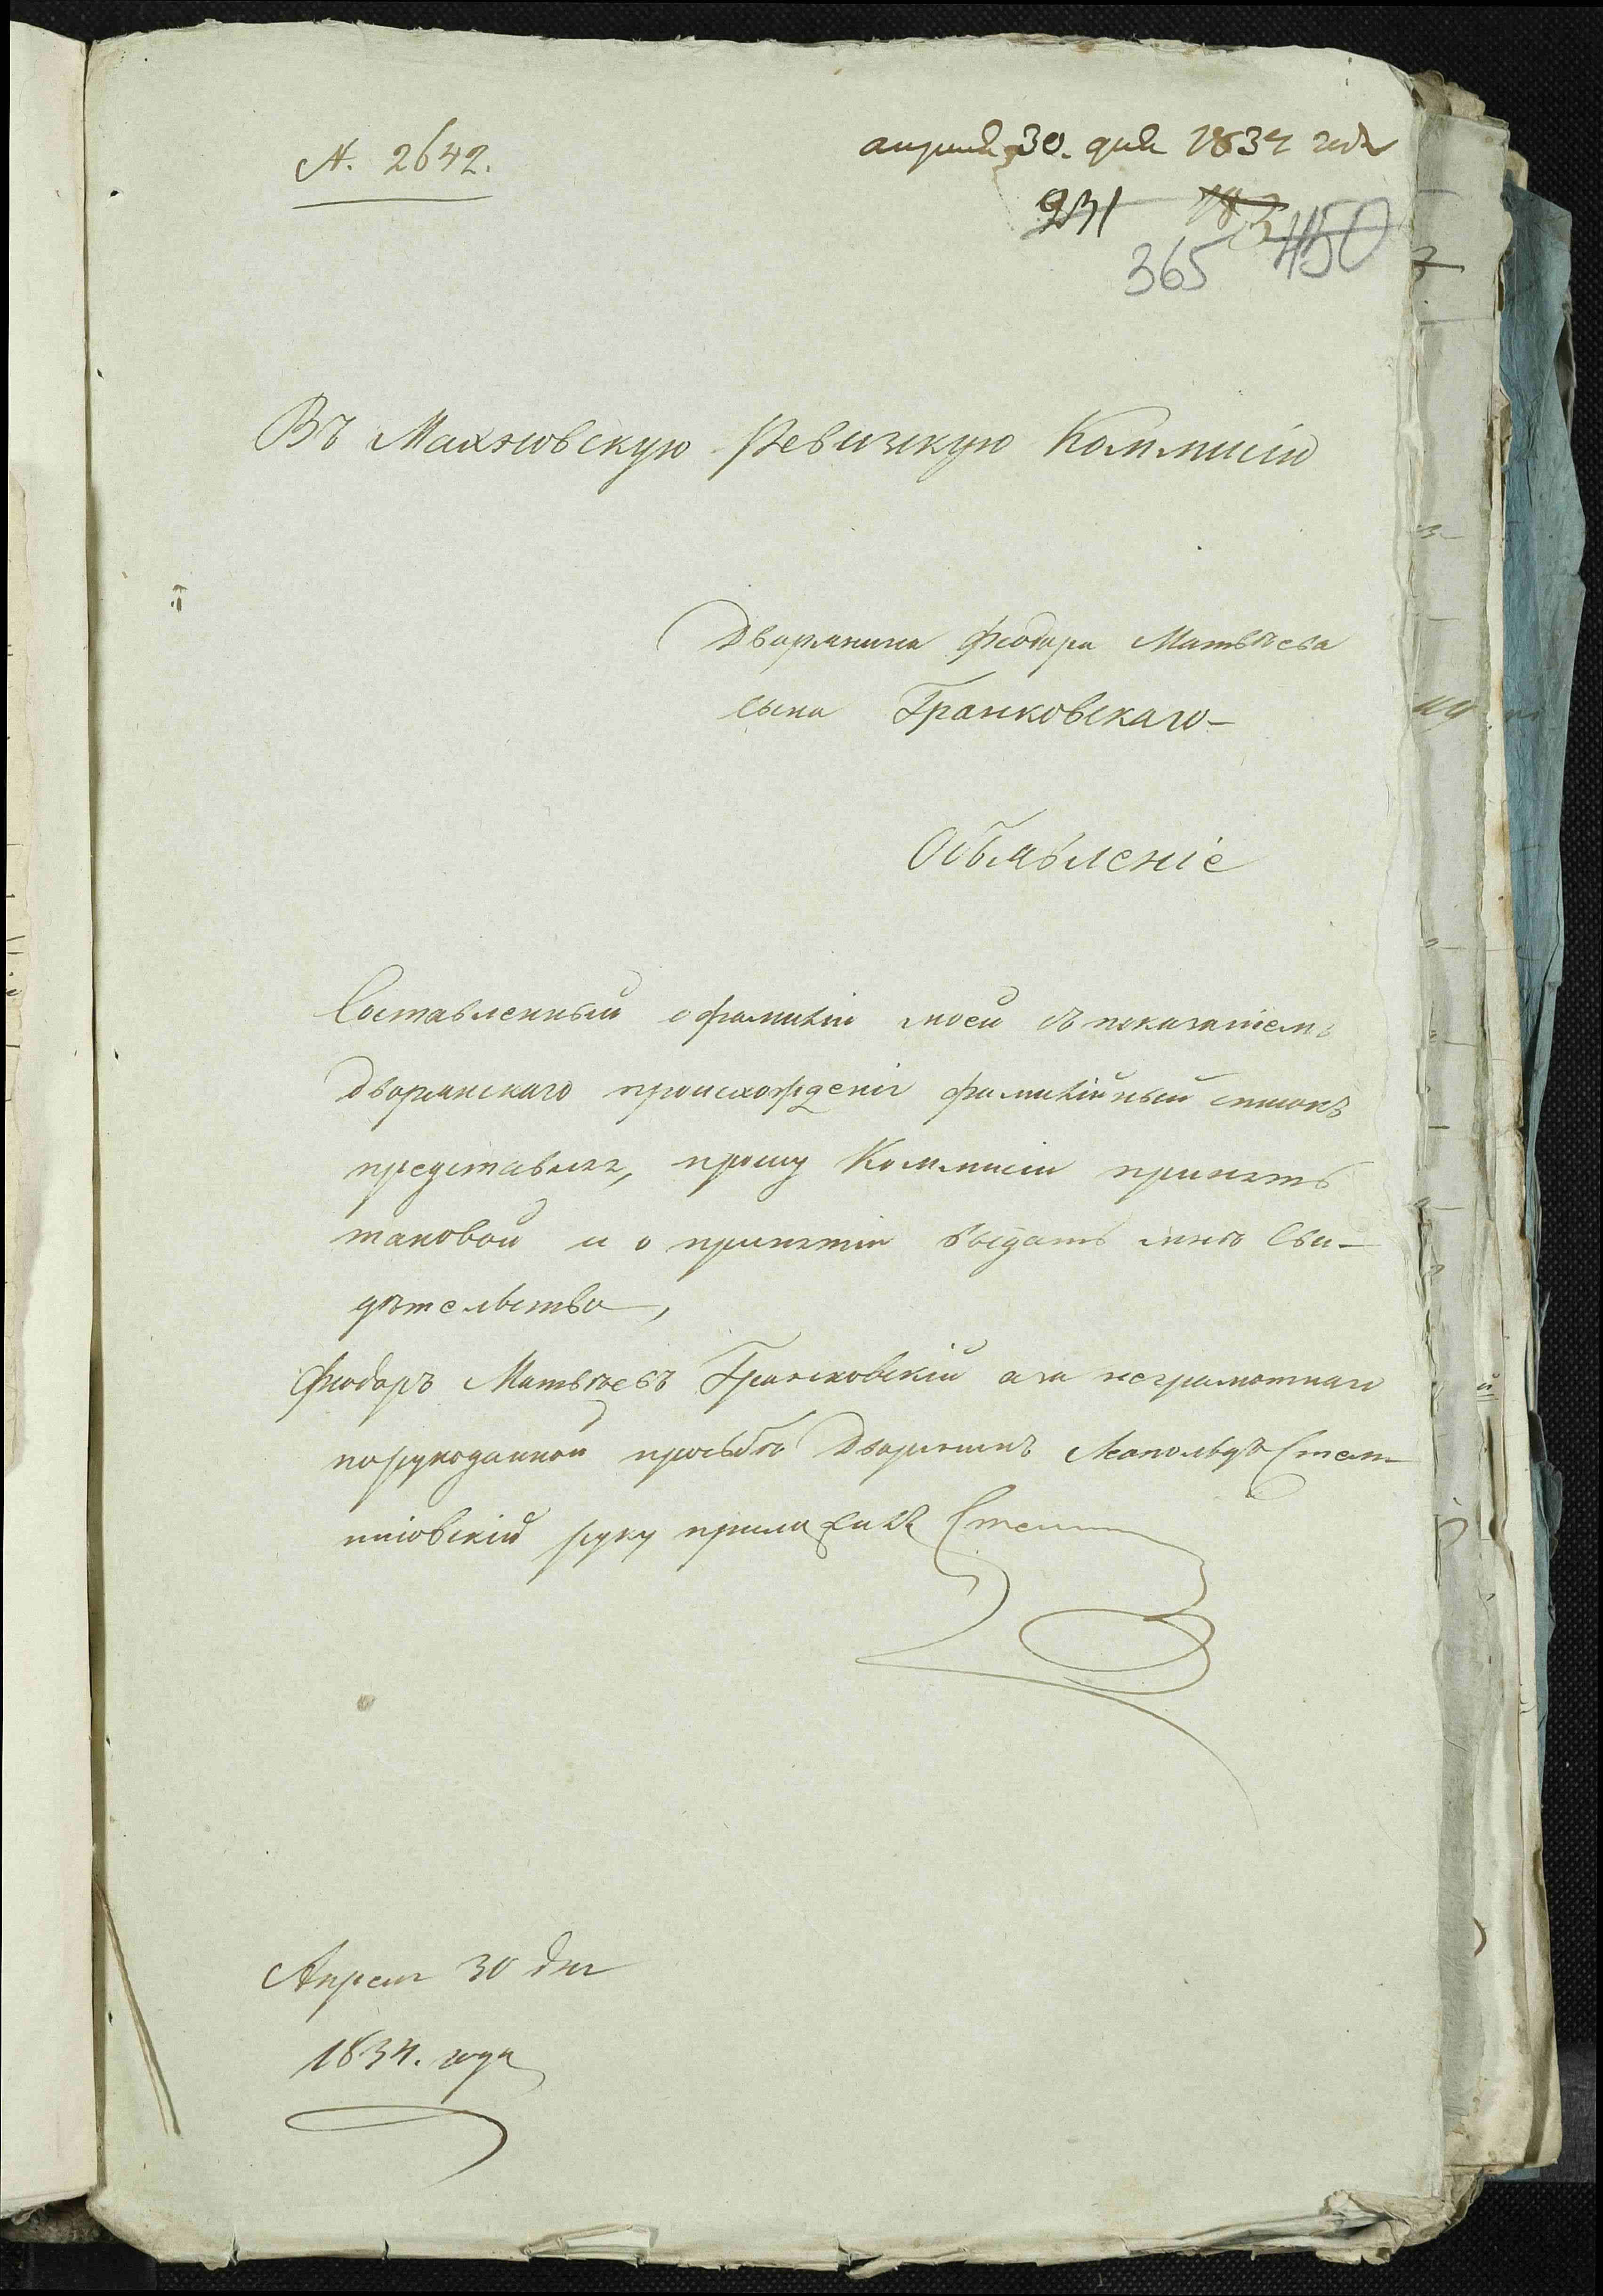 №. 2642.
апреля 30. дня 1834 года
231
183 450
365
Въ Махновскую Ревизкую Коммисію
Дворянина Фіодора Матвѣева
сына Гранковскаго
Объявленіе
Составленный о фамиліи моей съ показаніемъ
дворянскаго происхожденія фамилійный списокъ
представляя, прошу Коммисіи принять
таковой и о принятіи выдать мнѣ Сви-
дѣтельство,
Фіодоръ Матвѣевъ Гранковскій а за неграмотнаго
порукоданной прозьбѣ Дворянинъ Леопольдъ Стем-
повскій руку приложилъ
Апреля 30 дня
1834. года